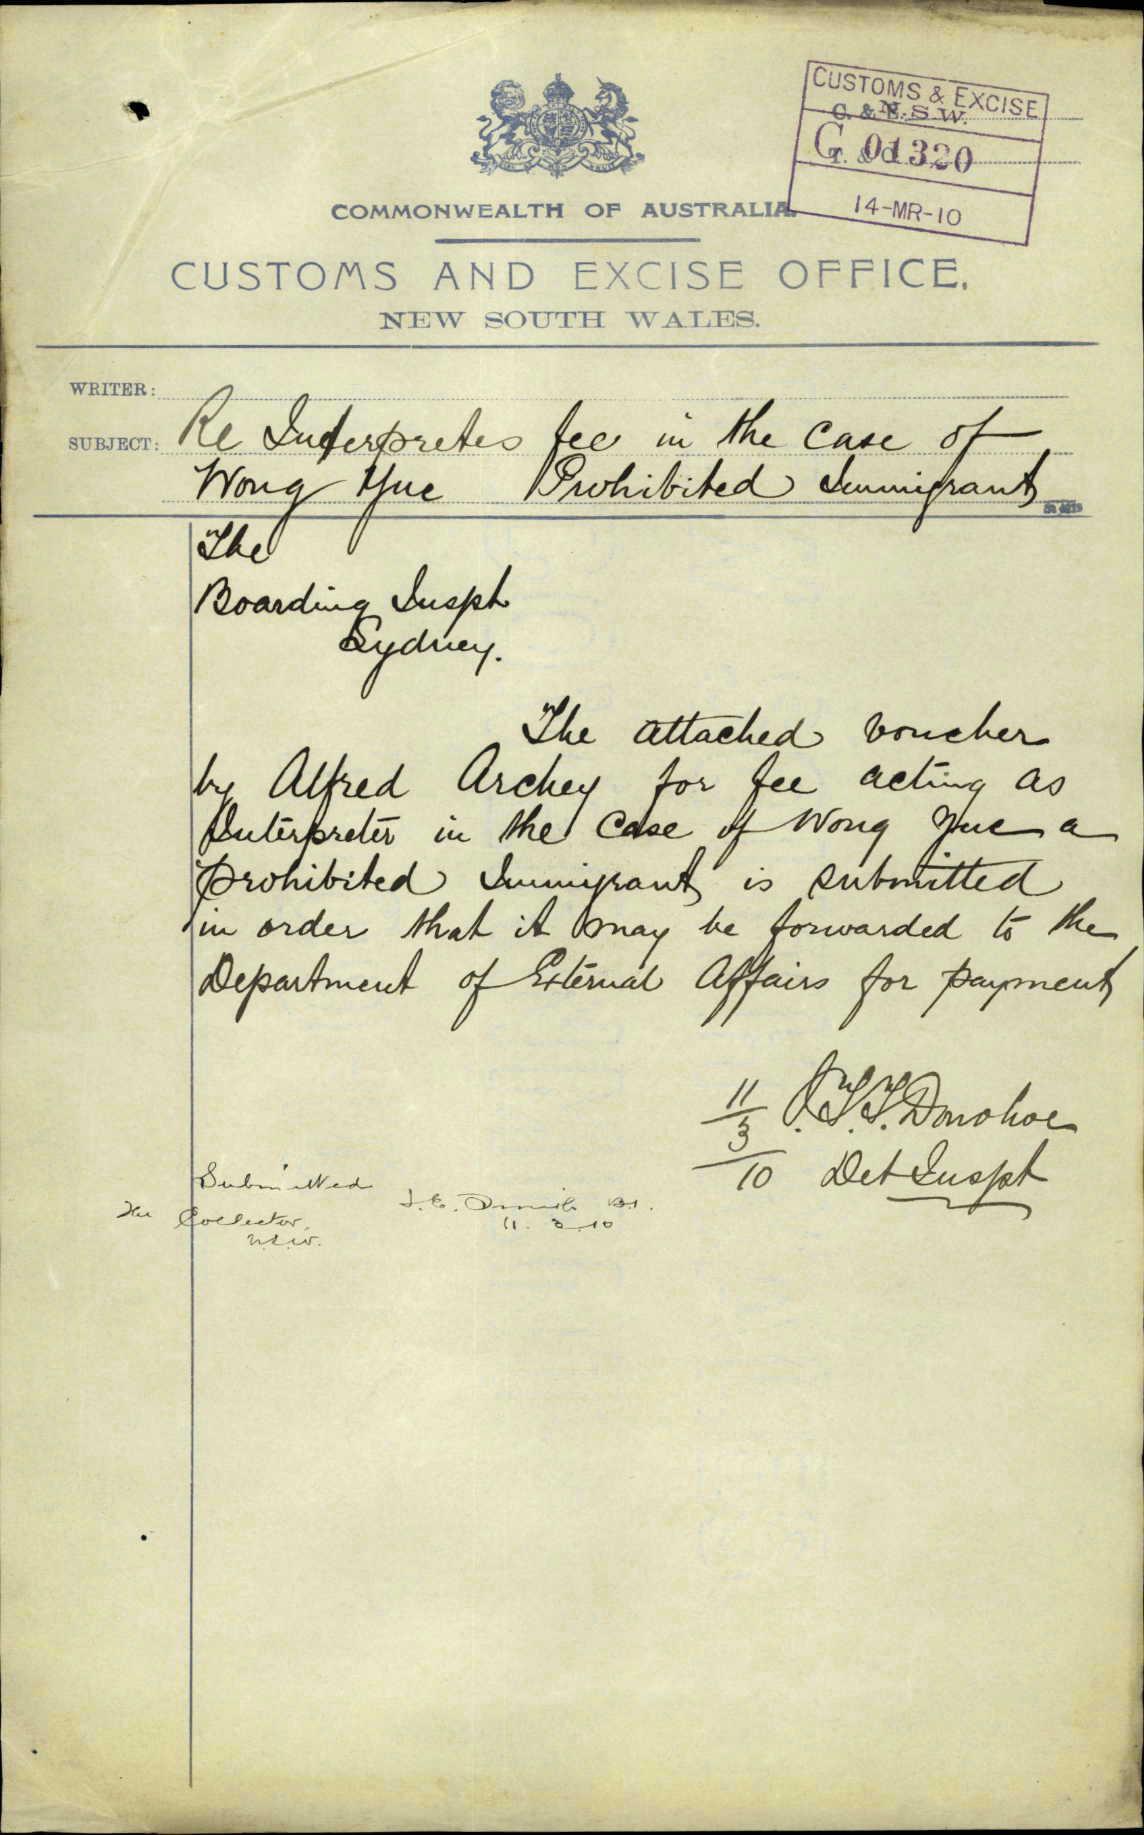 CUSTOMS & EXCISE
C. & E.
N. S. W.
G 01320
14-MR-10
COMMONWEALTH OF AUSTRALIA.
CUSTOMS AND EXCISE OFFICE,
NEW SOUTH WALES.
WRITER:
SUBJECT: Re Interpretes fee in the case of
Wong Yue Prohibited Immigrant
The
Boarding Inspt
Sydney.
The attached voucher
by Alfred Archey for fee acting as
Interpreter in the case of Wong Yue a
prohibited Immigrant is submitted
in order that it may be forwarded to the
Department of External Affairs for payment
11/3/10 J.T.T. Donohoe
Det Inspt
Submitted
The Collector,
N.S.W.
11. 3. 10